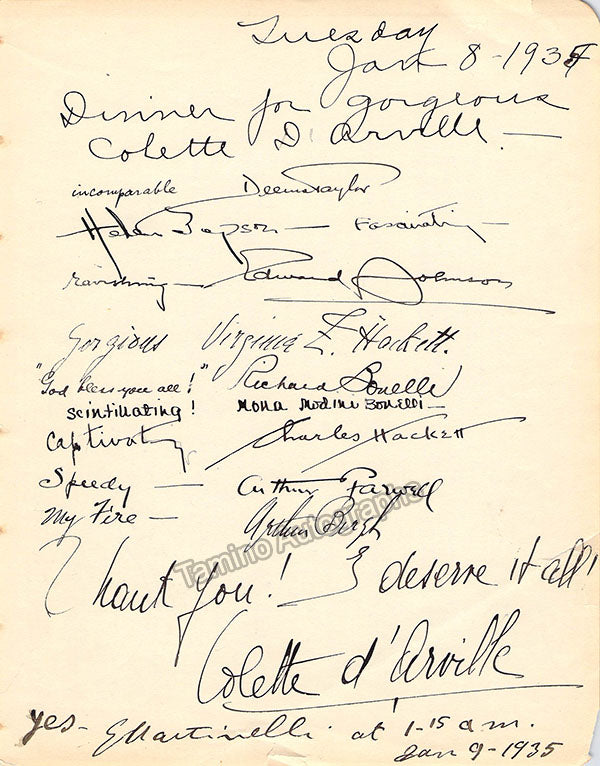 Tuesday
Jan 8-1935
Dinner for gorgeous
Colette D'Arville.—
incomparable Deems Taylor
Helen Jepson — Fascinating —
ravishing — Edward Johnson
Gorgious Virginia Z. Hackett.
"God bless you all!" Richard Bonelli
scintillating! Mona Modini Bonelli—
Captivating Charles Hackett
Speedy — Arthur Farwell
My Fire — Arthur
Thank You! I deserve it all!
Tamino Autographs
Colette d'Arville
yes- EMartinelli at 1-15 a.m.
Jan 9-1935